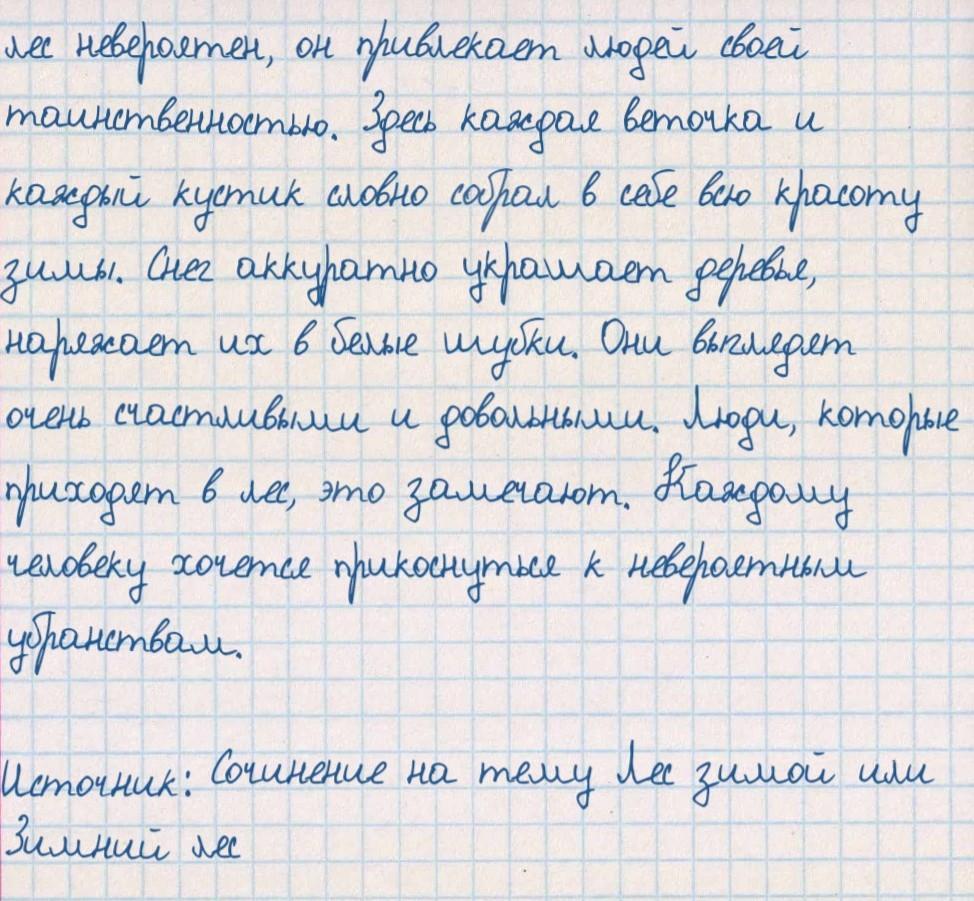 лес невероятен, он привлекает людей своей
таинственностью. Здесь каждая веточка и
каждый кустик словно собрал в себе всю красоту
зимы. Снег аккуратно украшает деревья,
наряжает их в белые шубки. Они выглядят
очень счастливыми и довольными. Люди, которые
приходят в лес, это замечают. Каждому
человеку хочется прикоснуться к невероятным
убранствам.
Источник: Сочинение на тему Лес зимой или
Зимний лес